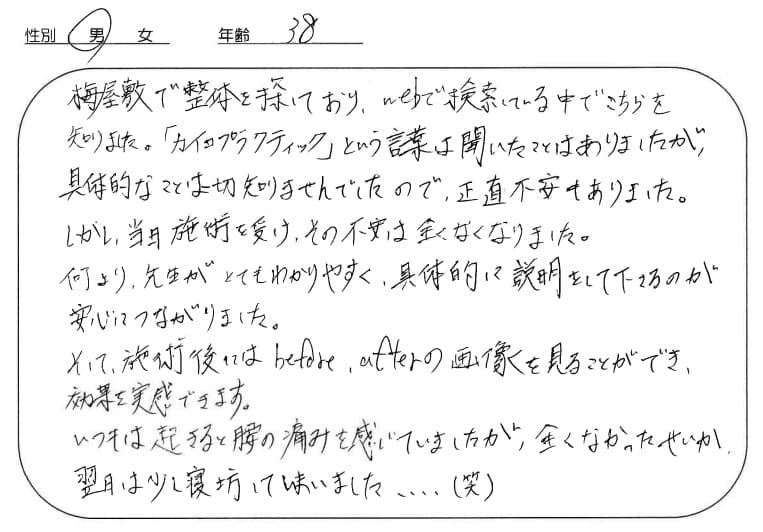 性別 男 女 年齢 38
梅屋敷で整体を探しており、webで検索している中でこちらを
知りました。「カイロプラクティック」という言葉は聞いたことはありましたが、
具体的なことは一切知りませんでしたので、正直不安もありました。
しかし、当日施術を受け、その不安は全くなくなりました。
何より、先生がとてもわかりやすく、具体的に説明をして下さるのが
安心につながりました。
そして、施術後にはbefore、afterの画像を見ることができ、
効果を実感できます。
いつもは起きると腰の痛みを感じていましたが、全くなかったせいか、
翌日は少し寝坊して味いました、、、、(笑)